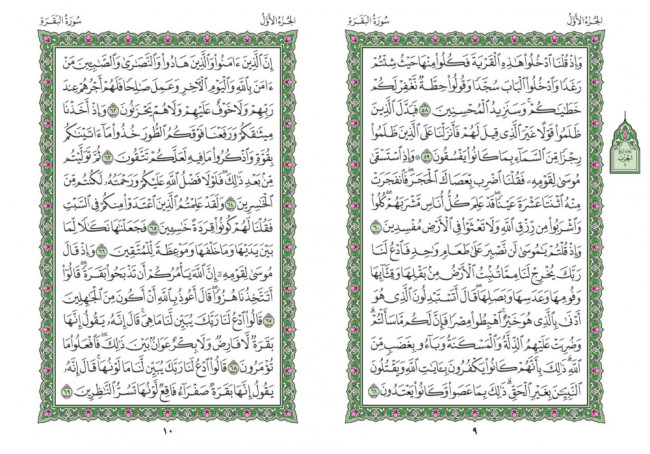 الجزء الأول
سورة البقرة
وَإِذْ قُلْنَا ٱدْخُلُوا۟ هَٰذِهِ ٱلْقَرْيَةَ فَكُلُوا۟ مِنْهَا حَيْثُ شِئْتُمْ
رَغَدًا وَٱدْخُلُوا۟ ٱلْبَابَ سُجَّدًا وَقُولُوا۟ حِطَّةٌ نَّغْفِرْ لَكُمْ
خَطَٰيَٰكُمْ ۚ وَسَنَزِيدُ ٱلْمُحْسِنِينَ ٥٨ فَبَدَّلَ ٱلَّذِينَ
ظَلَمُوا۟ قَوْلًا غَيْرَ ٱلَّذِى قِيلَ لَهُمْ فَأَنزَلْنَا عَلَى ٱلَّذِينَ ظَلَمُوا۟
رِجْزًا مِّنَ ٱلسَّمَآءِ بِمَا كَانُوا۟ يَفْسُقُونَ ٥٩ ۞ وَإِذِ ٱسْتَسْقَىٰ
مُوسَىٰ لِقَوْمِهِۦ فَقُلْنَا ٱضْرِب بِّعَصَاكَ ٱلْحَجَرَ ۖ فَٱنفَجَرَتْ
مِنْهُ ٱثْنَتَا عَشْرَةَ عَيْنًا ۖ قَدْ عَلِمَ كُلُّ أُنَاسٍ مَّشْرَبَهُمْ ۖ كُلُوا۟
وَٱشْرَبُوا۟ مِن رِّزْقِ ٱللَّهِ وَلَا تَعْثَوْا۟ فِى ٱلْأَرْضِ مُفْسِدِينَ ٦٠
وَإِذْ قُلْتُمْ يَٰمُوسَىٰ لَن نَّصْبِرَ عَلَىٰ طَعَامٍ وَٰحِدٍ فَٱدْعُ لَنَا
رَبَّكَ يُخْرِجْ لَنَا مِمَّا تُنۢبِتُ ٱلْأَرْضُ مِنۢ بَقْلِهَا وَقِثَّآئِهَا
وَفُومِهَا وَعَدَسِهَا وَبَصَلِهَا ۖ قَالَ أَتَسْتَبْدِلُونَ ٱلَّذِى هُوَ
أَدْنَىٰ بِٱلَّذِى هُوَ خَيْرٌ ۚ ٱهْبِطُوا۟ مِصْرًا فَإِنَّ لَكُم مَّا سَأَلْتُمْ ۗ
وَضُرِبَتْ عَلَيْهِمُ ٱلذِّلَّةُ وَٱلْمَسْكَنَةُ وَبَآءُو بِغَضَبٍ مِّنَ
ٱللَّهِ ۗ ذَٰلِكَ بِأَنَّهُمْ كَانُوا۟ يَكْفُرُونَ بِـَٔايَٰتِ ٱللَّهِ وَيَقْتُلُونَ
ٱلنَّبِيِّـۧنَ بِغَيْرِ ٱلْحَقِّ ۗ ذَٰلِكَ بِمَا عَصَوا۟ وَّكَانُوا۟ يَعْتَدُونَ ٦١
٩
الجزء الأول
سورة البقرة
إِنَّ ٱلَّذِينَ ءَامَنُوا۟ وَٱلَّذِينَ هَادُوا۟ وَٱلنَّصَٰرَىٰ وَٱلصَّٰبِـِٔينَ مَنْ
ءَامَنَ بِٱللَّهِ وَٱلْيَوْمِ ٱلْـَٔاخِرِ وَعَمِلَ صَٰلِحًا فَلَهُمْ أَجْرُهُمْ عِندَ
رَبِّهِمْ وَلَا خَوْفٌ عَلَيْهِمْ وَلَا هُمْ يَحْزَنُونَ ٦٢ وَإِذْ أَخَذْنَا
مِيثَٰقَكُمْ وَرَفَعْنَا فَوْقَكُمُ ٱلطُّورَ خُذُوا۟ مَآ ءَاتَيْنَٰكُم
بِقُوَّةٍ وَٱذْكُرُوا۟ مَا فِيهِ لَعَلَّكُمْ تَتَّقُونَ ٦٣ ثُمَّ تَوَلَّيْتُم
مِّنۢ بَعْدِ ذَٰلِكَ ۖ فَلَوْلَا فَضْلُ ٱللَّهِ عَلَيْكُمْ وَرَحْمَتُهُۥ لَكُنتُم مِّنَ
ٱلْخَٰسِرِينَ ٦٤ وَلَقَدْ عَلِمْتُمُ ٱلَّذِينَ ٱعْتَدَوْا۟ مِنكُمْ فِى ٱلسَّبْتِ
فَقُلْنَا لَهُمْ كُونُوا۟ قِرَدَةً خَٰسِـِٔينَ ٦٥ فَجَعَلْنَٰهَا نَكَٰلًا لِّمَا
بَيْنَ يَدَيْهَا وَمَا خَلْفَهَا وَمَوْعِظَةً لِّلْمُتَّقِينَ ٦٦ وَإِذْ قَالَ
مُوسَىٰ لِقَوْمِهِۦٓ إِنَّ ٱللَّهَ يَأْمُرُكُمْ أَن تَذْبَحُوا۟ بَقَرَةً ۖ قَالُوٓا۟
أَتَتَّخِذُنَا هُزُوًا ۖ قَالَ أَعُوذُ بِٱللَّهِ أَنْ أَكُونَ مِنَ ٱلْجَٰهِلِينَ
٦٧ قَالُوا۟ ٱدْعُ لَنَا رَبَّكَ يُبَيِّن لَّنَا مَا هِىَ ۚ قَالَ إِنَّهُۥ يَقُولُ إِنَّهَا
بَقَرَةٌ لَّا فَارِضٌ وَلَا بِكْرٌ عَوَانٌۢ بَيْنَ ذَٰلِكَ ۖ فَٱفْعَلُوا۟ مَا
تُؤْمَرُونَ ٦٨ قَالُوا۟ ٱدْعُ لَنَا رَبَّكَ يُبَيِّن لَّنَا مَا لَوْنُهَا ۚ قَالَ إِنَّهُۥ
يَقُولُ إِنَّهَا بَقَرَةٌ صَفْرَآءُ فَاقِعٌ لَّوْنُهَا تَسُرُّ ٱلنَّٰظِرِينَ ٦٩
١٠